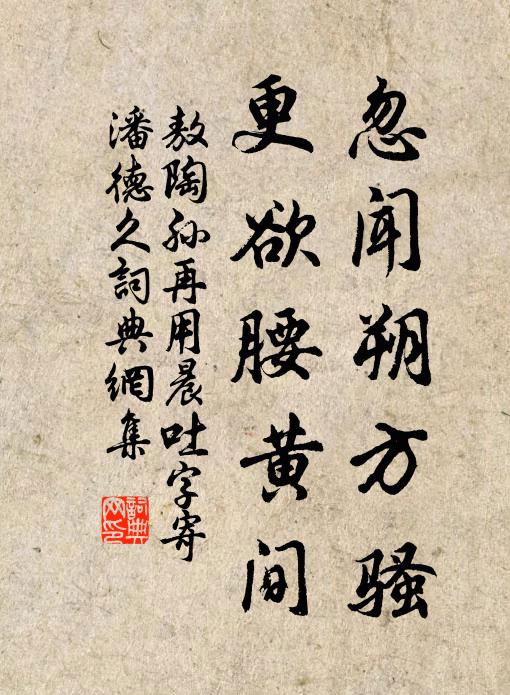 忽闻朔方骚
更欲腰黄间
敖陶孙再用晨吐字寄
潘德久詞典網集
詞典
网印